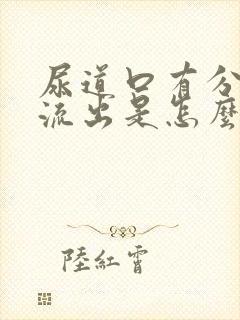 尿道口有分
流出是怎麼
陸紅霄